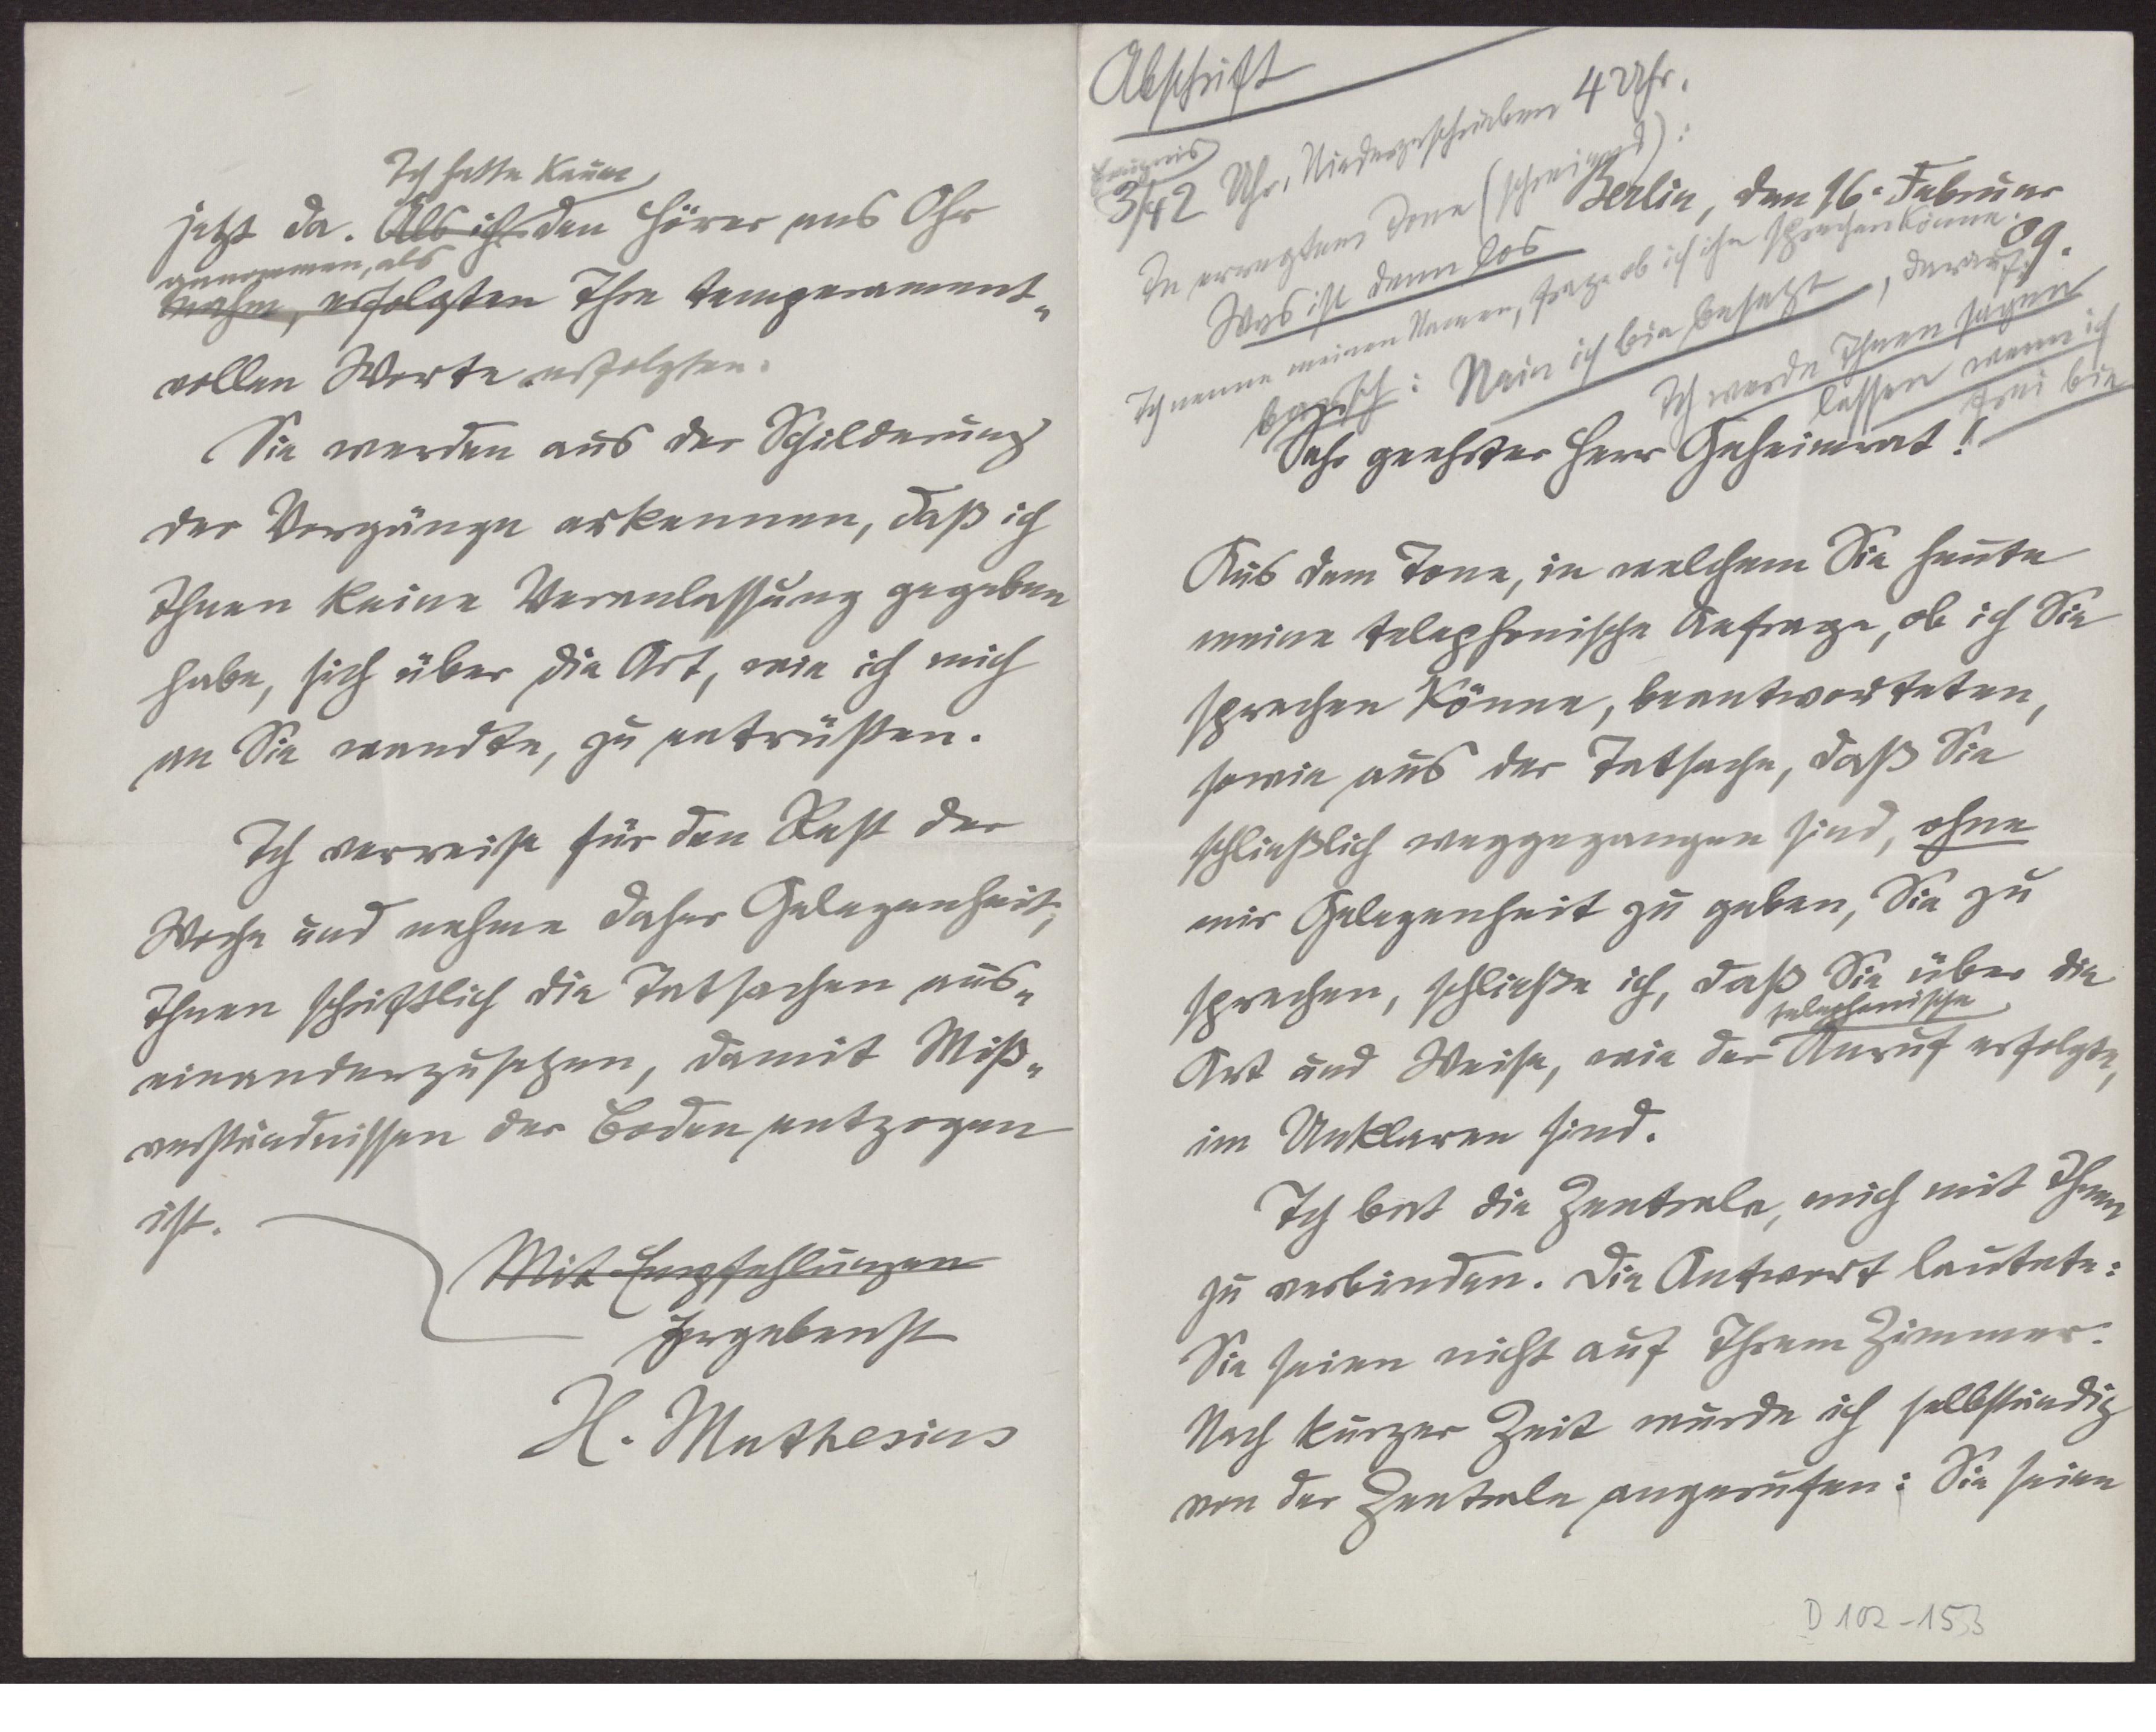 Abschrift
Ereignis
3/4 2 Uhr, Niedergeschrieben 4 Uhr.
In erregtem Tone (schreiend):
Was ist denn los
Ich nenne meinen Namen, frage ob ich ihn sprechen könne.
barsch: Nein ich bin besetzt, darauf:
Ich werde Ihnen sagen
lassen wenn ich
frei bin
Berlin, den 16. Februar
09.
Sehr geehrter Herr Geheimrat!
Aus dem Tone, in welchem Sie heute
meine telephonische Anfrage, ob ich Sie
sprechen könne, beantworteten,
sowie aus der Tatsache, daß Sie
schließlich weggegangen sind, ohne
mir Gelegenheit zu geben, Sie zu
sprechen, schließe ich, daß Sie über die
telephonische
Art und Weise, wie der Anruf erfolgte,
im Unklaren sind.
Ich bat die Zentrale, mich mit Ihnen
zu verbinden. Die Antwort lautete:
Sie seien nicht auf Ihrem Zimmer.
Nach kurzer Zeit wurde ich selbständig
von der Zentrale angerufen: Sie seien
D 102-153
Ich hatte kaum
jetzt da. Als ich den Hörer ans Ohr
genommen, als
nahm, erfolgten Ihre temperament-
vollen Worte erfolgten.
Sie werden aus der Schilderung
der Vorgänge erkennen, daß ich
Ihnen keine Veranlassung gegeben
habe, sich über die Art, wie ich mich
an Sie wandte, zu entrüsten.
Ich verreise für den Rest der
Woche und nehme daher Gelegenheit,
Ihnen schriftlich die Tatsachen aus-
einanderzusetzen, damit Miß-
verständnissen der Boden entzogen
ist.
Mit Empfehlungen
Ergebenst
H. Muthesius